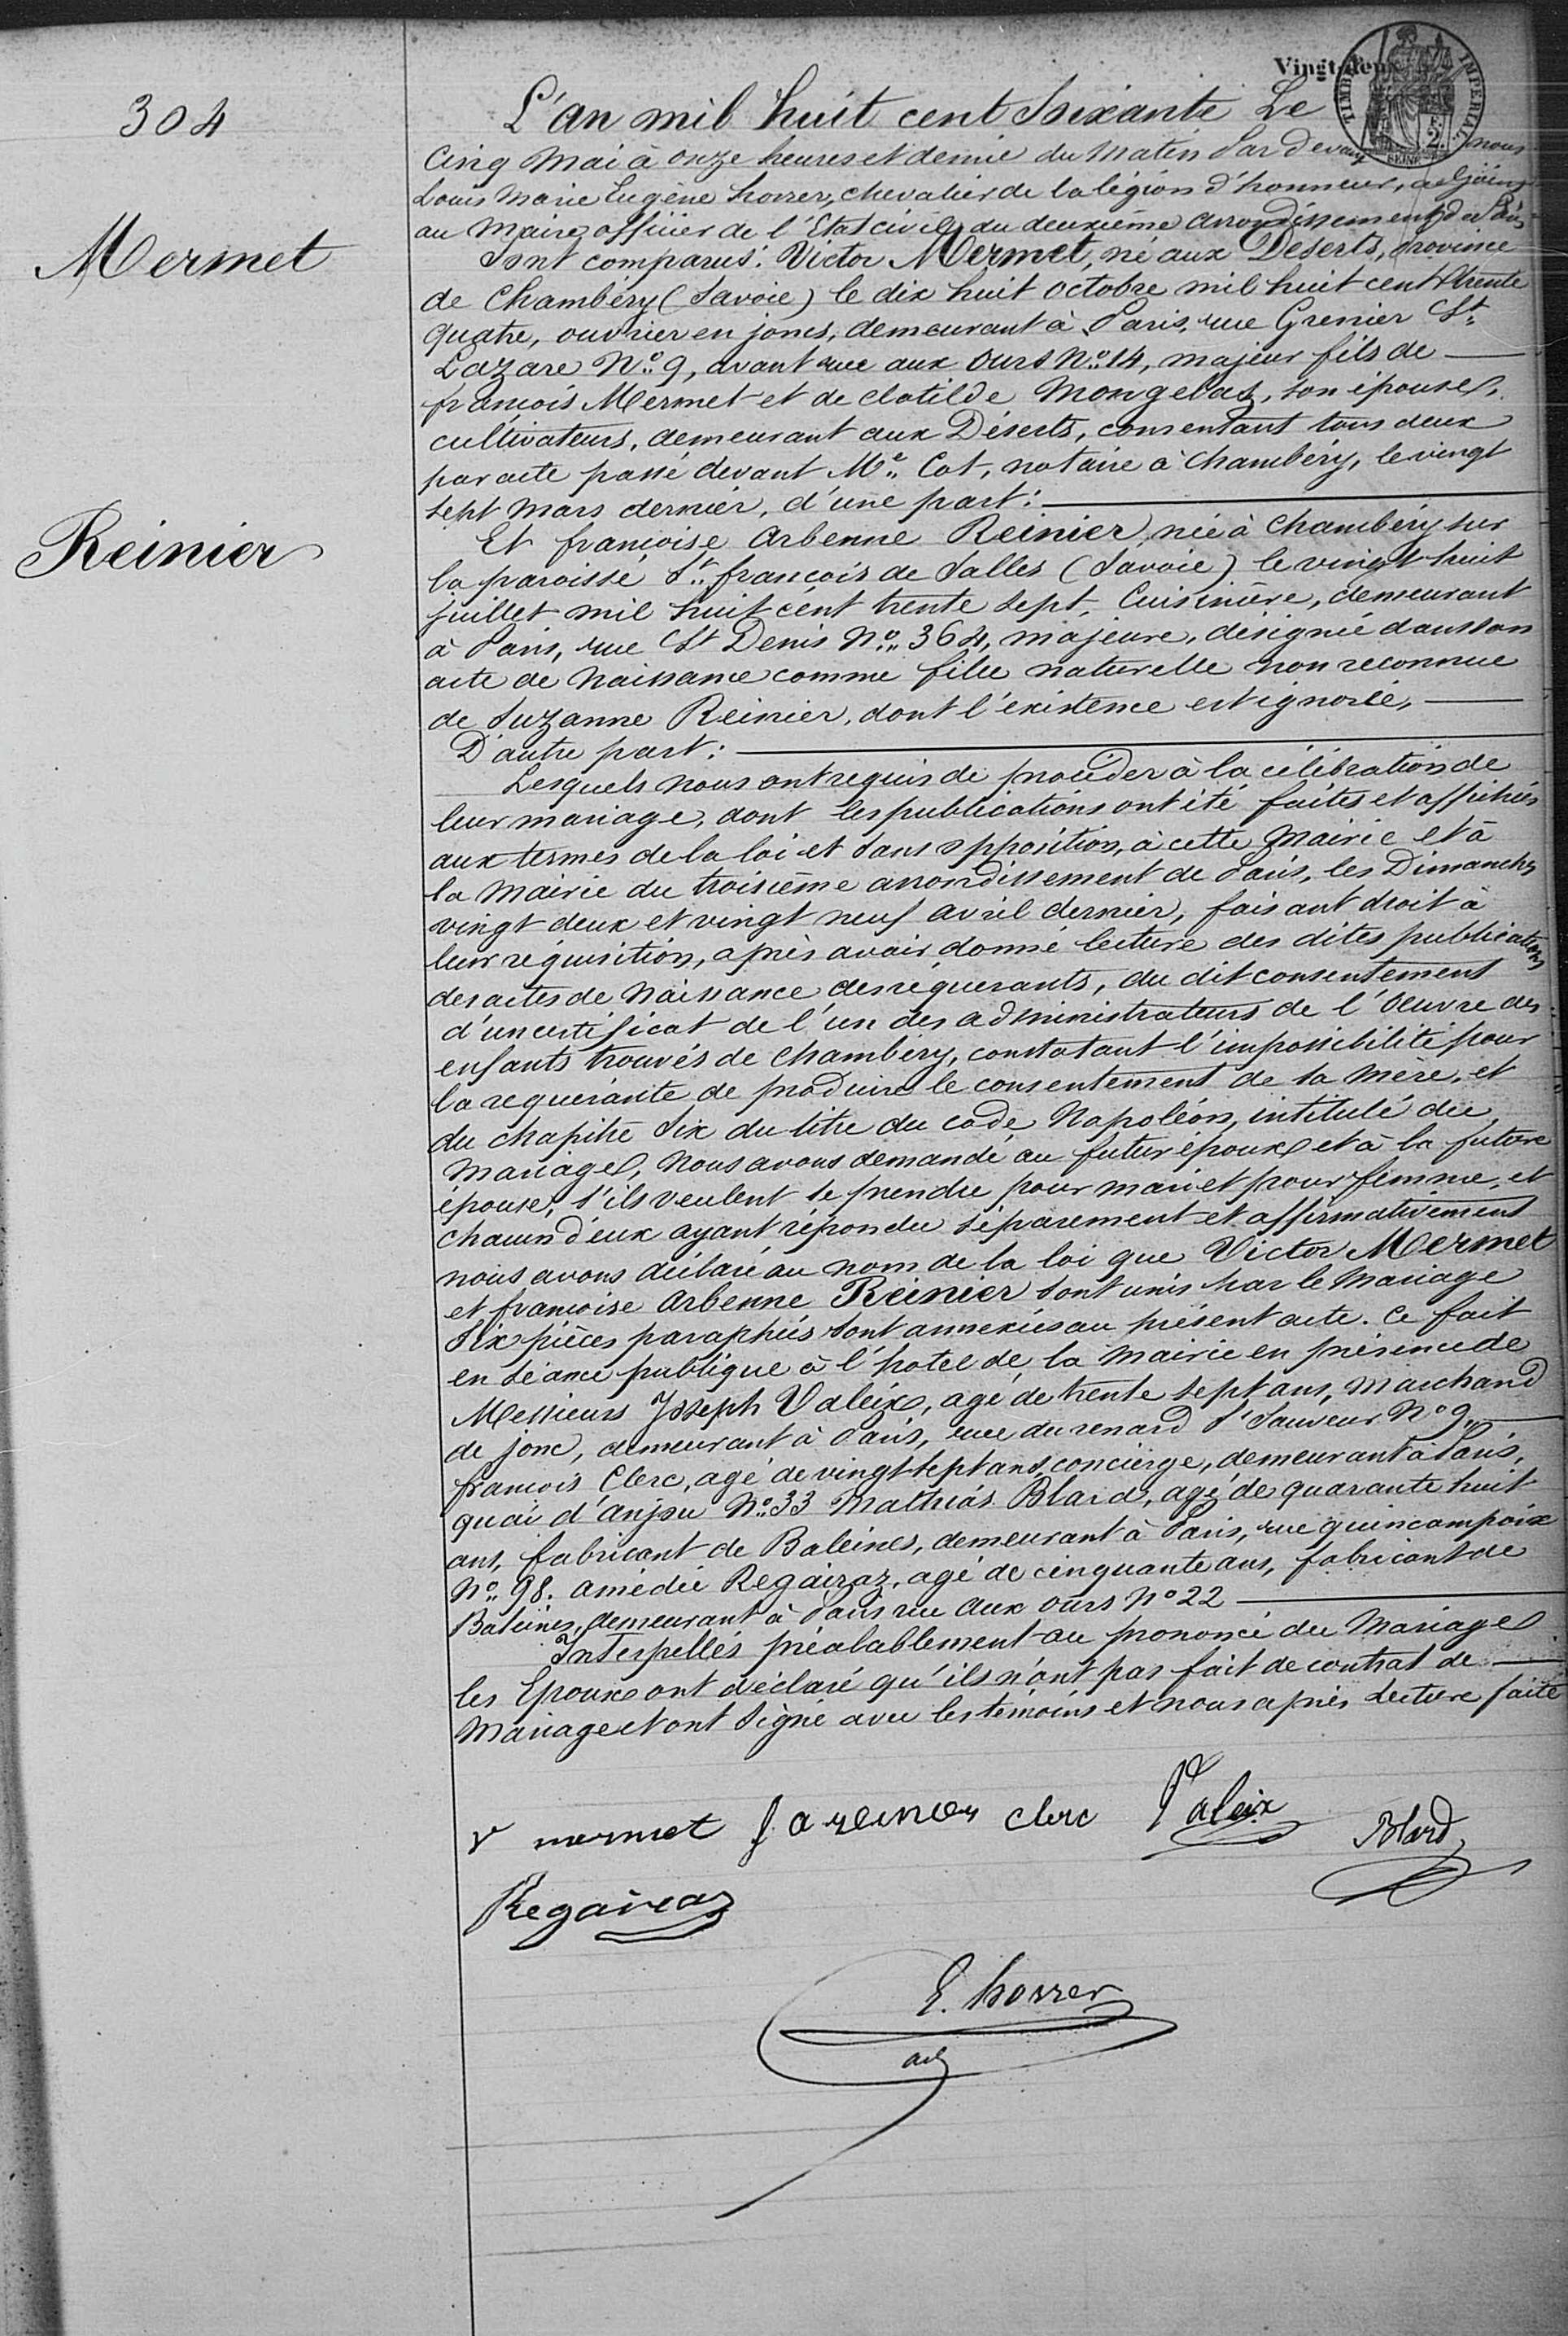 Vingt-deux
TIMBRE IMPERIAL
2
SEINE
304
Mermet
Reinier
L'an mil huit cent soixante Le
Cinq Mai à onze heures et demie du Matin Par devant nous
Louis Marie Eugène horrer, chevalier de la légion d'honneur, adjoint
au Maire officier de l'Etat civil du deuxième arrondissement de Paris
Sont comparus: Victor Mermet, né aux Deserts, province
de Chambéry (Savoie) le dix huit octobre mil huit cent trente
quatre, ouvrier en joncs, demeurant à Paris, rue Grenier St
Lazare No 9, avant rue aux Ours No 14, majeur fils de
françois Mermet et de clotilde Mongelaz, son épouse,
cultivateurs, demeurant aux Déserts, consentant tous deux
par acte passé devant Me Cot, notaire à Chambéry, le vingt
sept Mars dernier, d'une part:
Et françoise Arbenne Reinier née à Chambéry sur
la paroisse St françois de Salles (Savoie) le vingt huit
juillet mil huit cent trente sept, Cuisinière, demeurant
à Paris, rue St Denis No 364, majeure, désignée dans son
acte de Naissance comme fille naturelle non reconnue
de Suzanne Reinier, dont l'existence est ignorée,
D'autre part:
Lesquels nous ont requis de procéder à la célébration de
leur mariage, dont les publications ont été faites et affichées
aux termes de la loi et sans opposition, à cette Mairie et à
la Mairie du troisième arrondissement de Paris, les Dimanches
vingt deux et vingt neuf avril dernier, faisant droit à
leur réquisition, après avoir donné lecture des dites publications
des actes de Naissance des réquerants, du dit consentement
d'un certificat de l'un des administrateurs de l'Oeuvre des
enfants trouvés de Chambéry, constatant l'impossibilité pour
la requérante de produire le consentement de sa mère, et
du chapitre Six du titre du code Napoléon, intitulé du
Mariage, Nous avons demandé au futur époux et à la future
épouse, s'ils veulent se prendre pour mari et pour femme, et
chacun d'eux ayant répondu séparement et affirmativement
nous avons déclaré au nom de la loi que Victor Mermet
et françoise Arbenne Reinier sont unis par le Mariage
Six pièces paraphées sont annexées au présent acte. Ce fait
en séance publique à l'hotel de la Mairie en présence de
Messieurs Joseph Valeix, agé de trente sept ans, Marchand
de jonc, demeurant à Paris, rue du renard St Sauveur No 9,
françois Clerc, agé de vingt sept ans, concierge, demeurant à Paris,
quai d'anjou No 33 Mathias Blard, agé de quarante huit
ans, fabricant de Baleines, demeurant à Paris, rue quincampoix
No 98. amédée Regairaz, agé de cinquante ans, fabricant de
Baleines, demeurant à Paris rue aux ours No 22
Interpellés préalablement au prononcé du Mariage
les Epoux ont déclaré qu'ils n'ont pas fait de contrat de
Mariage et ont signé avec les témoins et nous après lecture faite
v mermet f a reinier clerc Valeix Blard
Regairaz
E. horrer
adj